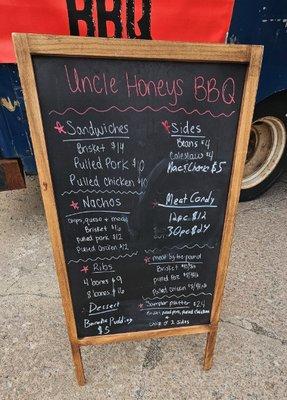 BBQ
Uncle Honeys BBQ
Sandwiches
Brisket $14
Pulled Pork $10
Pulled chicken $10
Nachos
chips, queso + meat
Brisket $16
pulled pork $12
Pulled chicken $12
Ribs
4 bones $9
8 bones $16
Dessert
Banana Pudding
$5
Sides
Beans $4
Coleslaw $4
Mac & Cheese $5
Meat Candy
12pc $12
30pc $24
meat by the pound
Brisket
pulled pork
Pulled chicken
Sampler platter $24
Brisket, pulled pork, pulled chicken and
choice of 2 sides